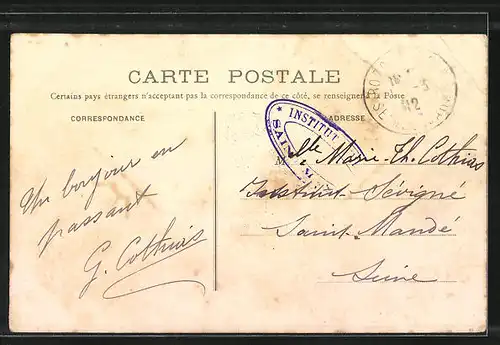 CARTE POSTALE
Certains pays étrangers n'acceptant pas la correspondance de ce côté, se renseigner à la Poste
CORRESPONDANCE
ADRESSE
INSTITUT
SAIN
12
Mlle Marie-Th. Cothias
Institut Sévigné
Saint-Mandé
Seine
Un bonjour en
passant
G. Cothias